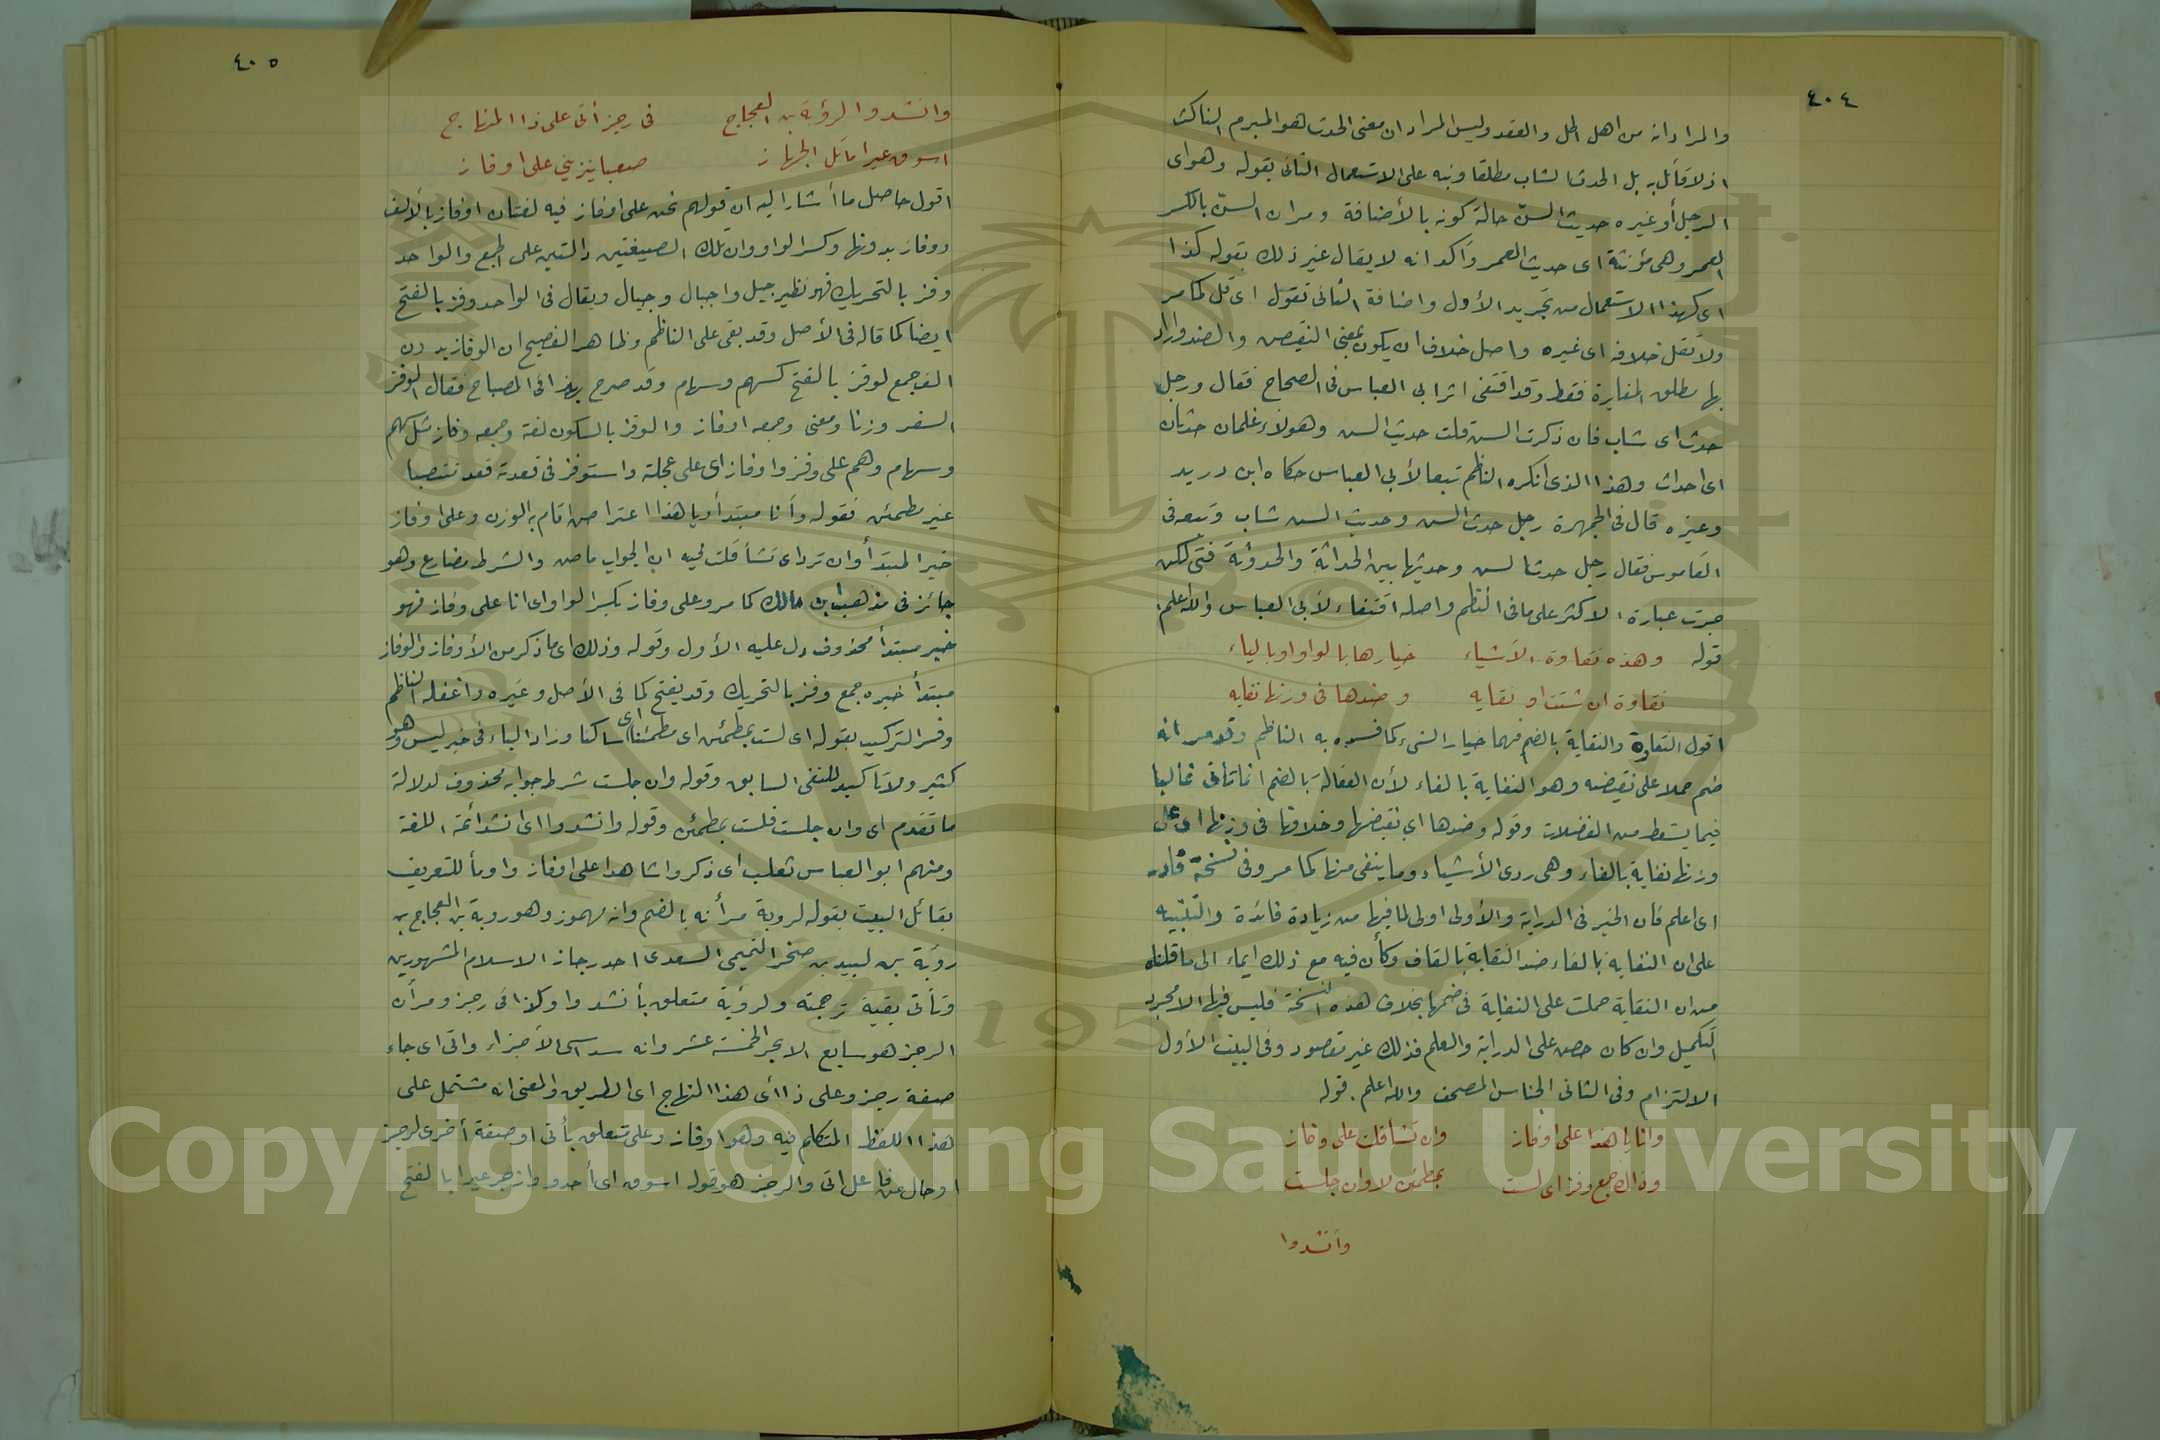 ٤٠٤
والمراد انه من اهل الحل والعقد وليس المراد ان معنى الحدث هو المبرم الناكث
اذ لا قائل به بل الحدث الشاب مطلقا ونبه على الاستعمال الثانى بقوله وهو اى
الرجل أو غيره حديث السن حالة كونه بالأضافة ومر ان السن بالكسر
العمر وهى مؤنثة اى حديث العمر وأكد انه لا يقال غير ذلك بقوله كذا
اى كهذا الاستعمال من تجريد الأول واضافة الثانى تقول اى قل كما مر
ولا تقل خلافه اى غيره واصل خلاف ان يكون بمعنى النقيض والضد واراد
بها مطلق المغايرة فقط وقد اقتفى اثر ابى العباس فى الصحاح فقال ورجل
حدث اى شاب فان ذكرت السن قلت حديث السن وهؤلاء غلمان حدثان
اى احداث وهذا الذى انكره الناظم تبعا لأبى العباس حكاه ابن دريد
وغيره قال فى الجمهرة رجل حدث السن وحديث السن شاب وتبعه فى
القاموس فقال رجل حدث السن وحديثها بين الحداثة والحدوثة فتى لكن
جرت عبارة الاكثر على ما فى النظم واصله اقتفاء لأبى العباس والله اعلم
قوله وهذه نقاوة الاشياء خيارها بالواو او بالياء
نقاوة ان شئت او نقايه وضدها فى وزنها نفايه
اقول النقاوة والنقاية بالضم فيهما خيار الشىء كما فسره به الناظم وقد مر انه
ضم حملا على نقيضه وهو النفاية بالفاء لأن الفعالة بالضم انما تاتى غالبا
فيما يسقط من الفضلات وقوله وضدها اي نقيضها وخلافها فى وزنها اى على
وزنها نفاية بالفاء وهى ردى الأشياء وما ينفى منها كما مر وفى نسخة فادر
اى اعلم فان الخير فى الدراية والأولى اولى لما فيها من زيادة فائدة والتنبيه
على ان النفاية بالفاء ضد النقاية بالقاف وكأن فيه مع ذلك ايماء الى ما قلناه
من ان النقاية حملت على النفاية فى ضمها بخلاف هذه النسخة فليس فيها الا مجرد
التكميل وان كان حض على الدراية والعلم فذلك غير مقصود وفى البيت الأول
الالتزام وفى الثانى الجناس المصحف والله اعلم. قوله
وانا يا هذا على اوفاز وان تشا قلت على وفاز
وذاك جمع وفز اى لست بمطمئن لا وان جلست
وانشدوا
٤٠٥
وانشدوا لرؤبة بن العجاج فى رجز أتى على ذا المنهاج
اسوق عيرا مائل الجهاز صعبا ينزينى على اوفاز
اقول حاصل ما أشار اليه ان قولهم نحن على اوفاز فيه لغتان اوفاز بالألف
ووفاز بدونها وكسر الواو وان تلك الصيغتين دالتين على الجمع والواحد
وفز بالتحريك فهو نظير جبل واجبال وجبال ويقال فى الواحد وفز بالفتح
ايضا كما قاله فى الأصل وقد بقى على الناظم وظاهر الفصيح ان الوفاز بدون
الف جمع لوفز بالفتح كسهم وسهام وقد صرح بهذا فى المصباح فقال الوفز
السفر وزنا ومعنى وجمعه اوفاز والوفز بالسكون لغة وجمعه وفاز مثل سهم
وسهام وهم على وفز واوفاز اى على عجلة واستوفز فى قعدته قعد منتصبا
غير مطمئن فقوله وأنا مبتدأ ويا هذا اعتراض اقام به الوزن وعلى اوفاز
خبر المبتدأ وان ترد اى تشأ قلت فيه ان الجواب ماض والشرط مضارع وهو
جائز فى مذهب ابن مالك كما مر وعلى وفاز بكسر الواو اى انا على وفاز فهو
خبر مبتدأ محذوف دل عليه الأول وقوله وذلك اى ما ذكر من الأوفاز والوفاز
مبتدأ خبره جمع وفز بالتحريك وقد يفتح كما فى الأصل وغيره واغفله الناظم
وفسر التركيب بقوله اى لست بمطمئن اى مطمئنا اى ساكنا وزاد الباء فى خبر ليس وهو
كثير ولا تاكيد للنفى السابق وقوله وان جلست شرط جوابه محذوف لدلالة
ما تقدم اى وان جلست فلست بمطمئن وقوله وانشدوا اى انشد ائمة اللغة
ومنهم ابو العباس ثعلب اى ذكروا شاهدا على اوفاز واومأ للتعريف
بقائل البيت بقوله لروبة مر أنه بالضم وانه مهموز وهو روبة بن العجاج بن
روبة بن لبيد بن صخر التميمى السعدى احد رجاز الاسلام المشهورين
وتأتى بقية ترجمته ولرؤبة متعلق بأنشدوا وكذا فى رجز ومر أن
الرجز هو سابع الابحر الخمسة عشر وانه سداسى الأجزاء واتى اى جاء
صفة رجز وعلى ذا اى هذا المنهاج اى الطريق والمعنى انه مشتمل على
هذا اللفظ المتكلم فيه وهو اوفاز وعلى متعلق بأتى او صفة أخرى لرجز
او حال من فاعل اتى والرجز هو قوله اسوق اى أحدو وازجر عيرا بالفتح
Copyright © King Saud University
1957